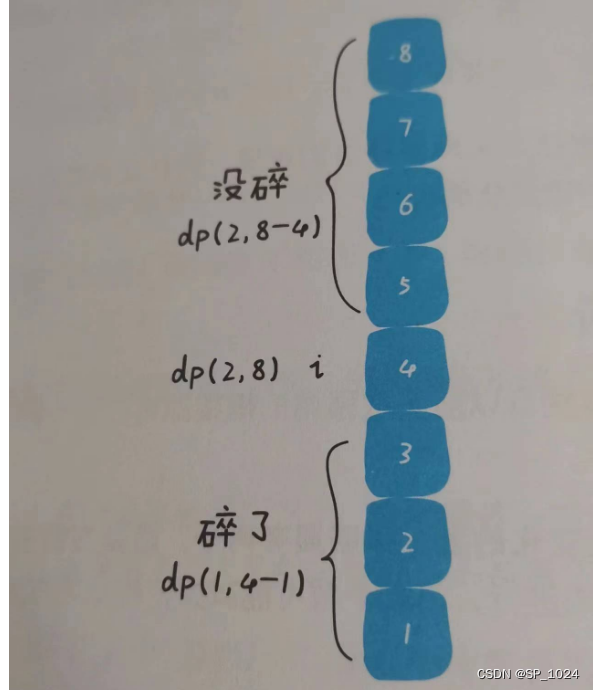 8
7
没碎
6
dp(2,8-4)
5
dp(2,8) i
4
3
碎了
2
dp(1,4-1)
1
CSDN @SP_1024